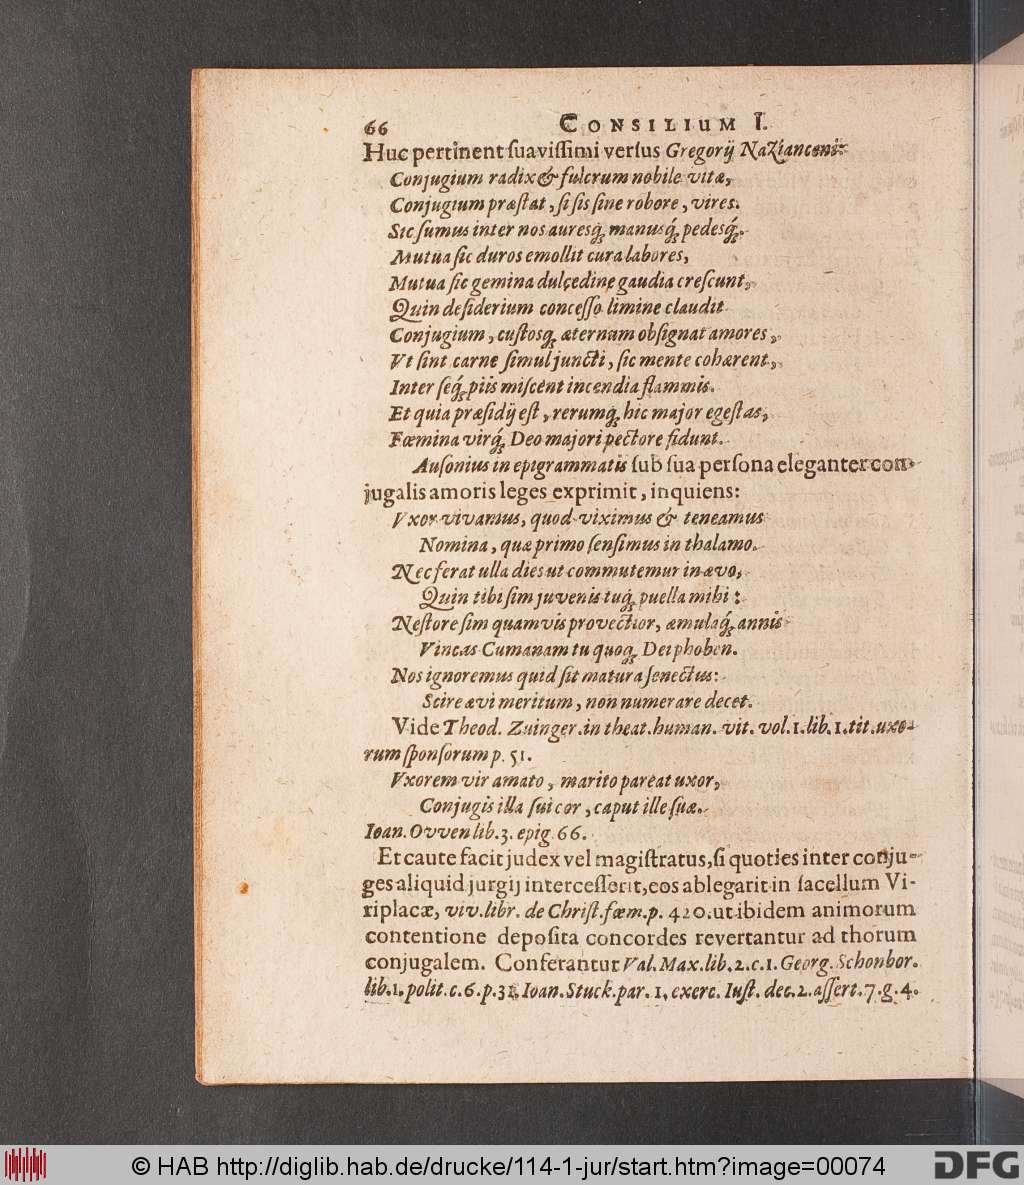 66 CONSILIUM I.
Huc pertinent suavissimi versus Gregorij Nazianceni:
Conjugium radix & fulcrum nobile vitæ,
Conjugium præstat, si sis sine robore, vires.
Sic sumus inter nos auresq́; manusq́; pedesq́;.
Mutua sic duros emollit cura labores,
Mutua sic gemina dulçedine gaudia crescunt,
Quin desiderium concesso limine claudit
Conjugium, custosq; æternam obsignat amores,
Vt sint carne simul juncti, sic mente cohærent,
Inter seq́; piis miscent incendia flammis.
Et quia præsidij est, rerumq́; hic major egestas,
Fœmina virq́; Deo majori pectore fidunt.
Ausonius in epigrammatis sub sua persona eleganter con-
jugalis amoris leges exprimit, inquiens:
Vxor vivamus, quod viximus & teneamus
Nomina, quæ primo sensimus in thalamo.
Nec ferat ulla dies ut commutemur in ævo,
Quin tibi sim juvenis tuq́; puella mihi:
Nestore sim quamvis provectior, æmulaq́; annis
Vincas Cumanam tu quoq; Deiphoben.
Nos ignoremus quid sit matura senectus:
Scire ævi meritum, non numerare decet.
Vide Theod. Zuinger. in theat. human. vit. vol. 1. lib. 1. tit. uxo-
rum sponsorum p. 51.
Vxorem vir amato, marito pareat uxor,
Conjugis illa sui cor, caput ille suæ.
Ioan. Ovven lib. 3. epig. 66.
Et caute facit judex vel magistratus, si quoties inter conju-
ges aliquid jurgij intercesserit, eos ablegarit in sacellum Vi-
riplacæ, viv. libr. de Christ. fœm. p. 420. ut ibidem animorum
contentione deposita concordes revertantur ad thorum
conjugalem. Conferantur Val. Max. lib. 2. c. 1. Georg. Schonbor.
lib. 1. polit. c. 6. p. 31. Ioan. Stuck. par. 1. exerc. Iust. dec. 2. assert. 7. g. 4.
© HAB http://diglib.hab.de/drucke/114-1-jur/start.htm?image=00074
DFG